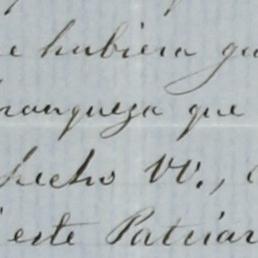 e hubiera gu
ranqueza que
hecho VV.,
este Patriar